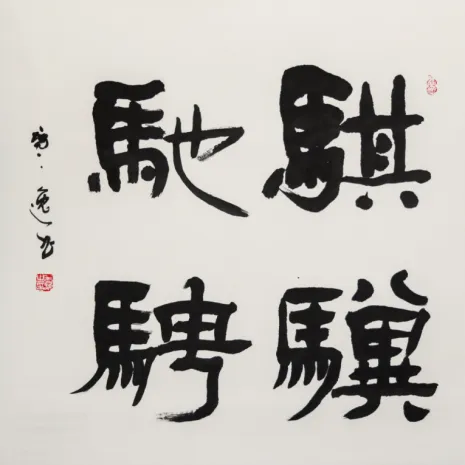 騏驥
馳騁